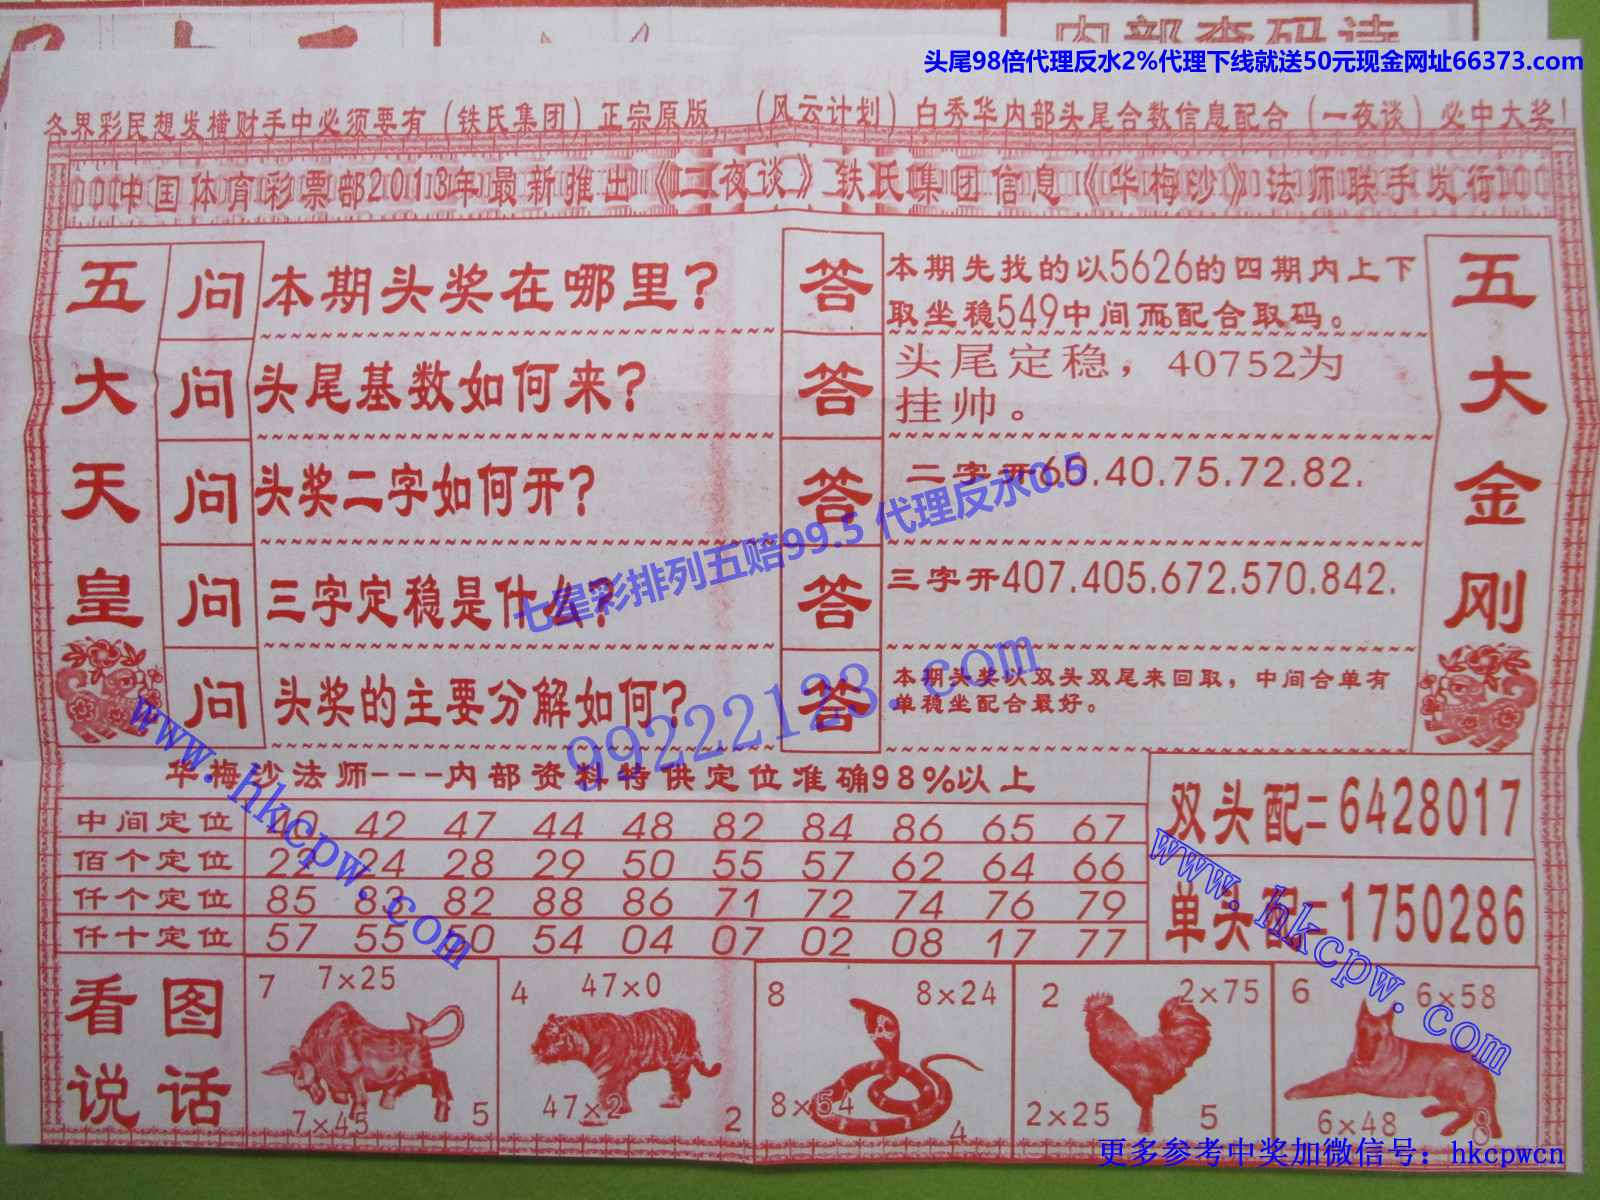 内部杏码诗
头尾98倍代理反水2%代理下线就送50元现金网址66373.com
各界彩民想发横财手中必须要有(铁氏集团)正宗原版,(风云计划)白秀华内部头尾合数信息配合(一夜谈)必中大奖!
中国体育彩票部2013年最新推出《二夜谈》铁氏集团信息《华梅沙》法师联手发行
五大天皇
问 本期头奖在哪里?
答 本期先找的以5626的四期内上下
取坐稳549中间而配合取码。
问 头尾基数如何来?
答 头尾定稳，40752为
挂帅。
问 头奖二字如何开?
答 二字开65.40.75.72.82.
问 三字定稳是什么?
答 三字开407.405.672.570.842.
问 头奖的主要分解如何?
答 本期头奖以双头双尾来回取，中间合单有
单稳坐配合最好。
五大金刚
七星彩排列五赔99.5 代理反水0.5
99222123.com
www.hkcpw.com
华梅沙法师---内部资料特供定位准确98%以上
中间定位 40 42 47 44 48 82 84 86 65 67
佰个定位 24 28 29 50 55 57 62 64 66
仟个定位 85 83 82 88 86 71 72 74 76 79
仟十定位 57 55 50 54 04 07 02 08 17 77
双头配=6428017
单头配=1750286
www.hkcpw.com
看图
说话
7 7×25
7×45 5
4 47×0
47×2 2
8 8×24
8×54 4
2 2×75
2×25 5
6 6×58
6×48 8
更多参考中奖加微信号：hkcpwcn